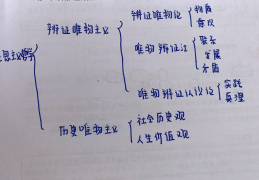 辩证唯物论
物质
意识
辩证唯物主义
唯物辩证法
联系
发展
矛盾
唯物辩证认识论
实践
真理
主义哲学
历史唯物主义
社会历史观
人生价值观